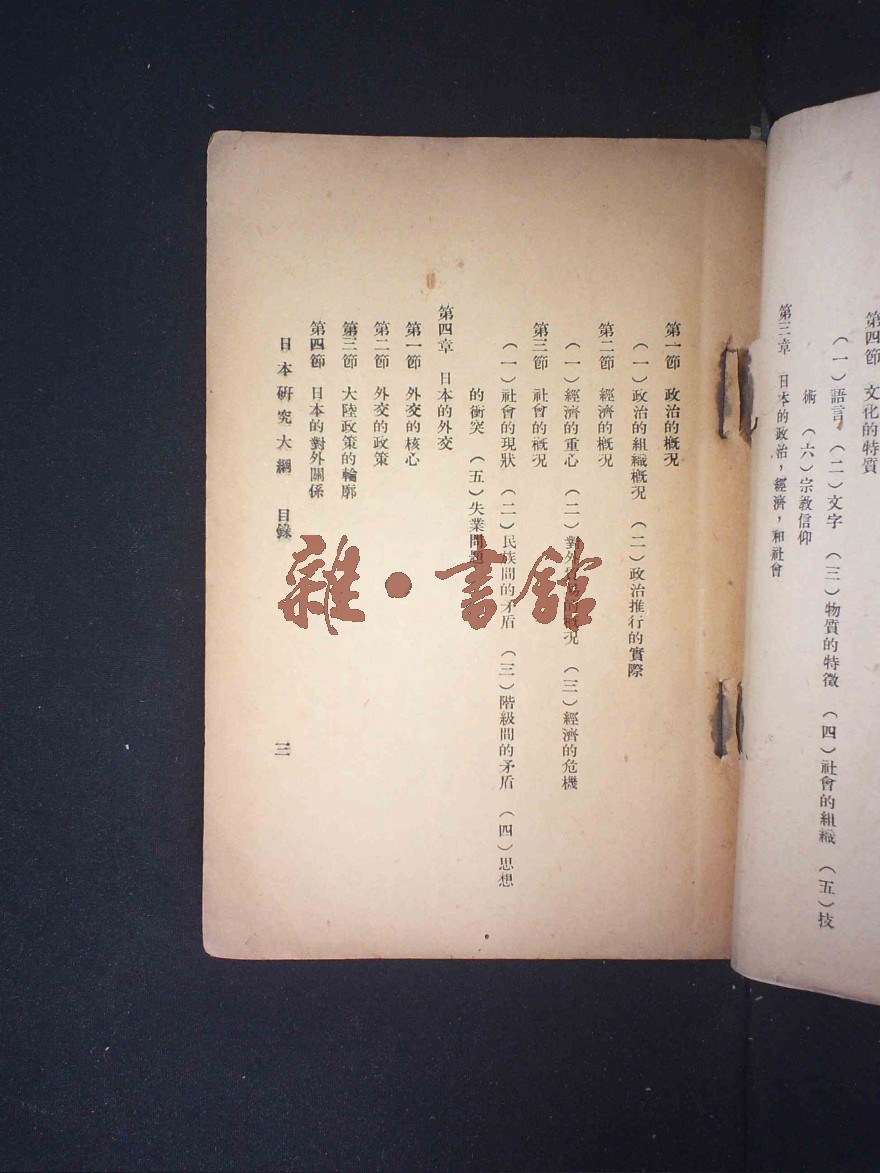 第四節　文化的特質
（一）語言　（二）文字　（三）物質的特徵　（四）社會的組織　（五）技
術　（六）宗教信仰
第三章　日本的政治，經濟，和社會
第一節　政治的概況
（一）政治的組織概況　（二）政治推行的實際
第二節　經濟的概況
（一）經濟的重心　（二）對外貿易的概況　（三）經濟的危機
第三節　社會的概況
（一）社會的現狀　（二）民族間的矛盾　（三）階級間的矛盾　（四）思想
的衝突　（五）失業問題
第四章　日本的外交
第一節　外交的核心
第二節　外交的政策
第三節　大陸政策的輪廓
第四節　日本的對外關係
日本研究大綱　目錄
三
雜·書館